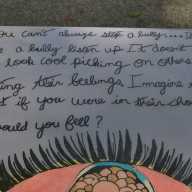 You can't always stop a bully....
a bully listen up It doesn't
look cool picking on others
ing their feelings. Imagine
if you were in their
would you fell?